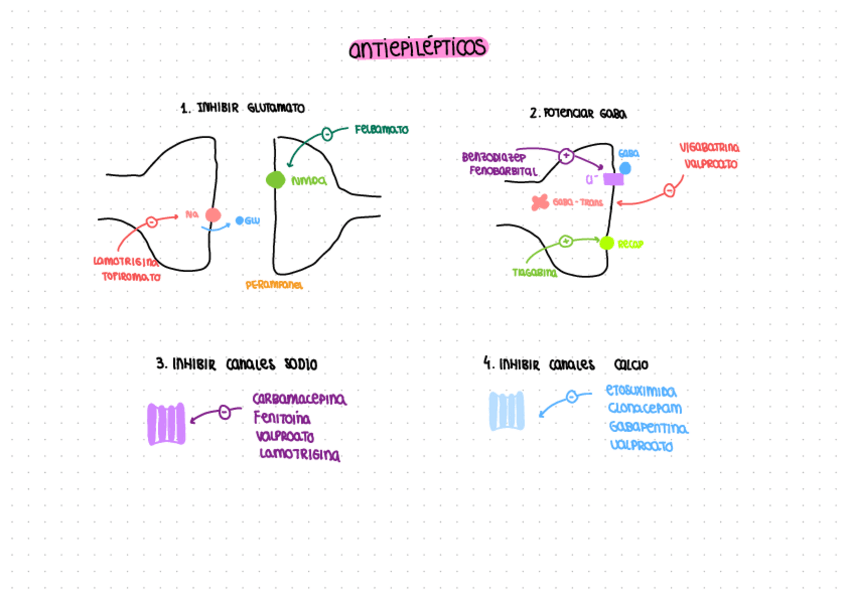 ANTIEPILÉPTICOS
1. INHIBIR GLUTAMATO
FELBAMATO
NMDA
Na
GLU
LAMOTRIGINA
TOPIROMATO
PERAMPANEL
2. POTENCIAR GABA
BENZODIAZEP
FENOBARBITAL
GABA
Cl⁻
VIGABATRINA
VALPROATO
GABA-TRANS
RECAP
TIAGABINA
3. INHIBIR CANALES SODIO
CARBAMACEPINA
FENITOÍNA
VALPROATO
LAMOTRIGINA
4. INHIBIR CANALES CALCIO
ETOSUXIMIDA
CLONACEPAM
GABAPENTINA
VALPROATO